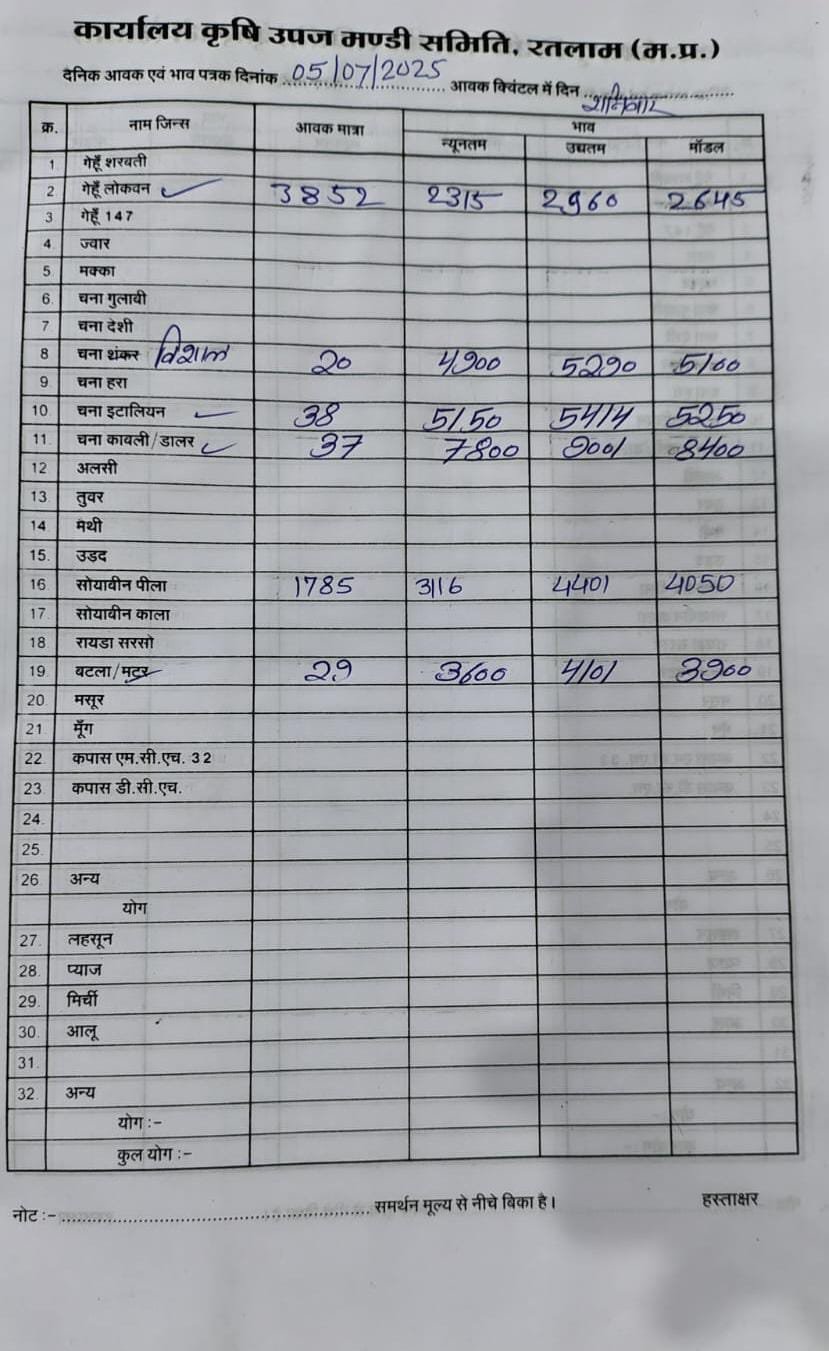 कार्यालय कृषि उपज मण्डी समिति, रतलाम (म.प्र.)
दैनिक आवक एवं भाव पत्रक दिनांक 05/07/2025 आवक क्विंटल में दिन शनिवार
क्र. नाम जिन्स आवक मात्रा भाव
न्यूनतम उच्चतम मॉडल
1. गेहूँ शरबती
2 गेहूँ लोकवन ✓ 3852 2315 2960 2645
3 गेहूँ 147
4 ज्वार
5. मक्का
6. चना गुलाबी
7 चना देशी
8 चना शंकर विशाल 20 4900 5290 5100
9. चना हरा
10. चना इटालियन 38 5150 5414 5250
11. चना काबली/डालर ✓ 37 7800 9001 8400
12 अलसी
13. तुवर
14 मैथी
15. उड़द
16 सोयाबीन पीला 1785 3116 4401 4050
17. सोयाबीन काला
18 रायडा सरसो
19. बटला/मटर 29 3600 4101 3900
20. मसूर
21 मूँग
22. कपास एम.सी.एच. 32
23. कपास डी.सी.एच.
24.
25.
26 अन्य
योग
27. लहसून
28. प्याज
29. मिर्ची
30. आलू
31.
32. अन्य
योग :-
कुल योग :-
नोट :- समर्थन मूल्य से नीचे बिका है। हस्ताक्षर